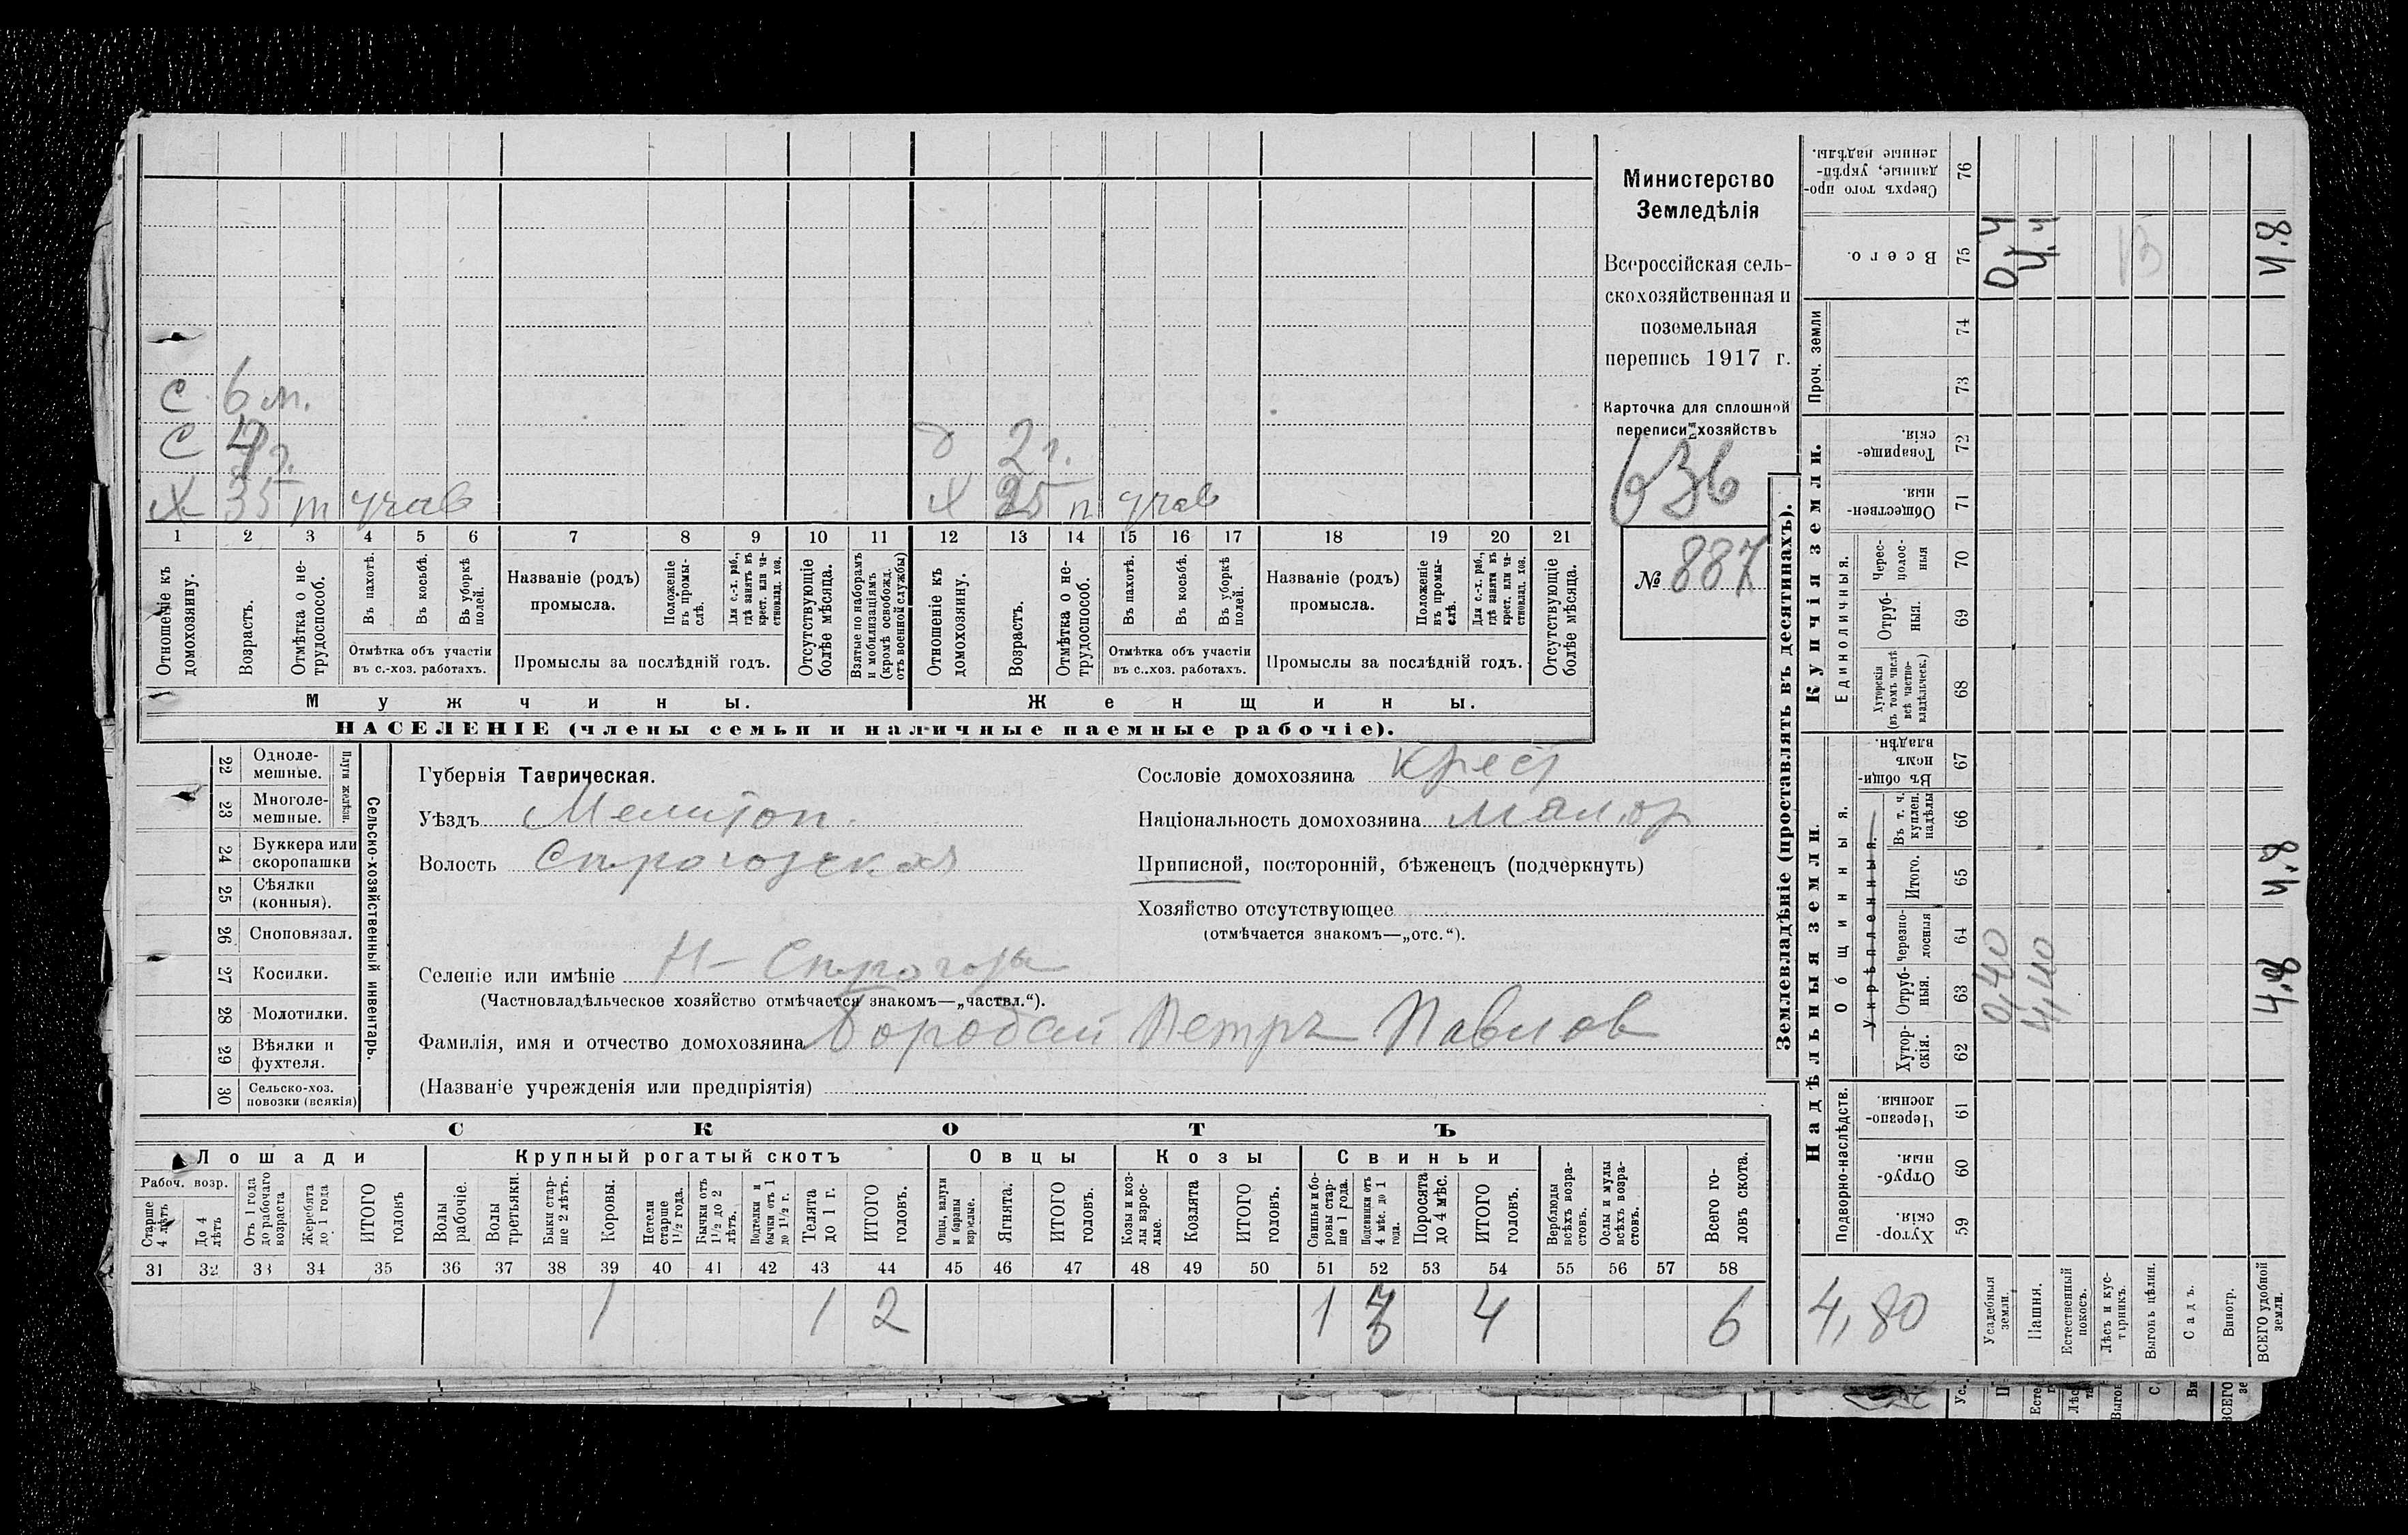 С 6 м.
С 4 г.
Д 2 г.
Х 35 т участ
Х 35 п участ
1 2 3 4 5 6 7 8 9 10 11 12 13 14 15 16 17 18 19 20 21
Отношеніе къ домохозяину.
Возрастъ.
Отмѣтка о нетрудоспособ.
Въ пахотѣ.
Въ косьбѣ.
Въ уборкѣ полей.
Отмѣтка объ участіи въ с.-хоз. работахъ.
Названіе (родъ) промысла.
Положеніе въ промыслѣ.
Для с.-х. раб., гдѣ занятъ въ крест. или частновлад. хоз.
Промыслы за послѣдній годъ.
Отсутствующіе болѣе мѣсяца.
Взятые по наборамъ и мобилизаціямъ (кромѣ освобожд. отъ военной службы)
Отношеніе къ домохозяину.
Возрастъ.
Отмѣтка о нетрудоспособ.
Въ пахотѣ.
Въ косьбѣ.
Въ уборкѣ полей.
Отмѣтка объ участіи въ с.-хоз. работахъ.
Названіе (родъ) промысла.
Положеніе въ промыслѣ.
Для с.-х. раб., гдѣ заняти въ крест. или частновлад. хоз.
Промыслы за послѣдній годъ.
Отсутствующіе болѣе мѣсяца.
Мужчины.
Женщины.
НАСЕЛЕНІЕ (члены семьи и наличные наемные рабочіе).
Министерство
Земледѣлія
Всероссійская сель-
скохозяйственная и
поземельная
перепись 1917 г.
Карточка для сплошной
переписи хозяйствъ
636
№ 887
22 Однолемешные.
23 Многолемешные.
Плуги желѣзн.
24 Буккера или скоропашки
25 Сѣялки (конныя).
26 Сноповязал.
27 Косилки.
28 Молотилки.
29 Вѣялки и фухтеля.
30 Сельско-хоз. повозки (всякія)
Сельско-хозяйственный инвентарь.
Губернія Таврическая.
Уѣздъ Мелитоп.
Волость
Селеніе или имѣніе
(Частновладѣльческое хозяйство отмѣчается знакомъ—„частвл.“).
Фамилія, имя и отчество домохозяина Бородай Петръ Павлов
(Названіе учрежденія или предпріятія)
Сословіе домохозяина Крест
Національность домохозяина Малор
Приписной, посторонній, бѣженецъ (подчеркнуть)
Хозяйство отсутствующее
(отмѣчается знакомъ—„отс.“).
СКОТЪ
Лошади
Крупный рогатый скотъ
Овцы
Козы
Свиньи
Рабоч. возр.
Старше 4 лѣтъ
До 4 лѣтъ
Отъ 1 года до рабочаго возраста
Жеребята до 1 года
ИТОГО головъ
Волы рабочіе.
Волы третьяки.
Быки старше 2 лѣтъ.
Коровы.
Нетели старше 1½ года.
Бычки отъ 1½ до 2 лѣтъ.
Подтелки и бычки отъ 1 до 1½ г.
Телята до 1 г.
ИТОГО головъ.
Овцы, валухи и бараны взрослые.
Ягнята.
ИТОГО головъ.
Козы и козлы взрослые.
Козлята
ИТОГО головъ.
Свиньи и боровы старше 1 года.
Подсвинки отъ 4 мѣс. до 1 года.
Поросята до 4 мѣс.
ИТОГО головъ.
Верблюды всѣхъ возрастовъ.
Ослы и мулы всѣхъ возрастовъ.
Всего головъ скота.
31 32 33 34 35 36 37 38 39 40 41 42 43 44 45 46 47 48 49 50 51 52 53 54 55 56 57 58
1 1 2 1 3 4 6
Землевладѣніе (проставлять въ десятинахъ).
Надѣльныя земли.
Купчія земли.
Проч. земли
Подворно-наслѣдств.
Общинныя.
Укрѣпленныя.
Единоличныя.
Сверхъ того проданные, укрѣпленные надѣлы. 76
Всего. 75
74
73
Товарищескія. 72
Общественныя. 71
Чересполосныя 70
Отрубныя. 69
Хуторскія (въ томъ числѣ всѣ частновладѣльческ.) 68
Въ общинномъ владѣн. 67
Въ т. ч. куплен. надѣлы 66
Итого. 65
Черезполосныя 64
Отрубныя. 63
Хуторскія. 62
Черезполосныя. 61
Отрубныя. 60
Хуторскія. 59
0,4
4,4
4.8
4.8
0,40
4,40
4.8
4,80
Усадебныя земли.
Пашня.
Естественный покосъ.
Лѣсъ и кустарникъ.
Выгонъ цѣлин.
Садъ.
Виногр.
ВСЕГО удобной земли.